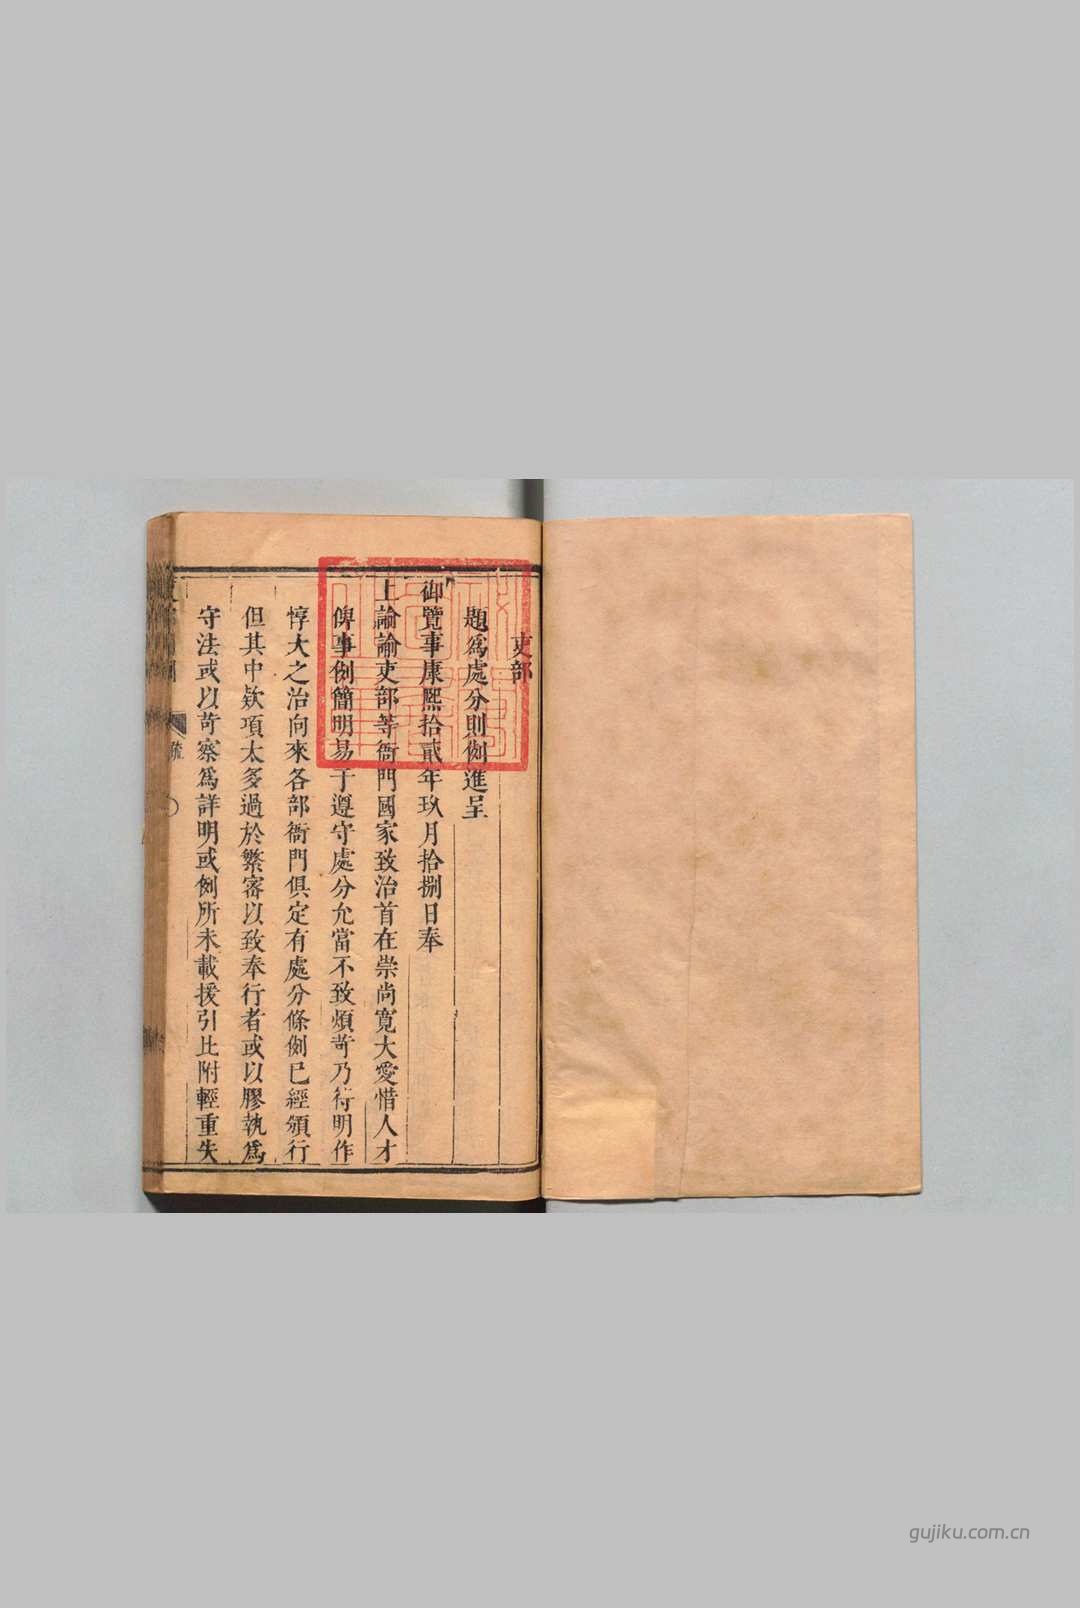 吏部
題爲處分則例進呈
御覽事康熙拾貳年玖月拾捌日奉
上諭諭吏部等衙門國家致治首在崇尚寬大愛惜人才
俾事例簡明易于遵守處分允當不致煩苛乃符明作
惇大之治向來各部衙門俱定有處分條例已經頒行
但其中欵項太多過於繁密以致奉行者或以膠執爲
守法或以苛察爲詳明或例所未載援引比附輕重失
疏
gujiku.com.cn